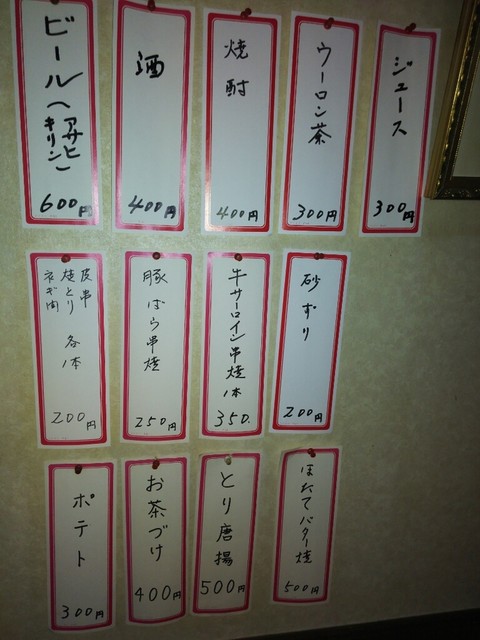 ビール（アサヒ
キリン）
600円
酒
400円
焼酎
400円
ウーロン茶
300円
ジュース
300円
皮串
焼とり
ネギ肉
各1本
200円
豚ばら串焼
250円
牛サーロイン串焼1本
350.
砂ずり
200円
ポテト
300円
お茶づけ
400円
とり唐揚
500円
ほたてバター焼
500円